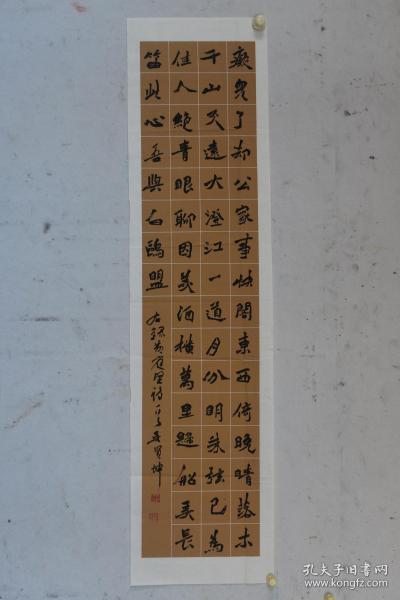 癡兒了却公家事快閣東西倚晚晴落木
千山天遠大澄江一道月分明朱弦已為
佳人絶青眼聊因美酒横萬里歸船弄長
笛此心吾與白鷗盟
右録黄庭堅詩一首
孔夫子旧书网
www.kongfz.com